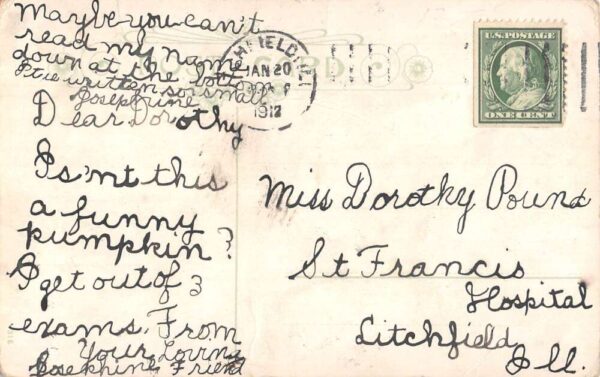 Maybe you can't
read my name
down at the bottom
I've written so small
Josephine
Dear Dorothy
Is'nt this
a funny
pumpkin?
I get out of 3
exams. From
Your Loving
Josephine Friend
POST CARD
JAN 20
1912
U.S. POSTAGE
ONE CENT
Miss Dorothy Pound
St Francis
Hospital
Litchfield
Ill.